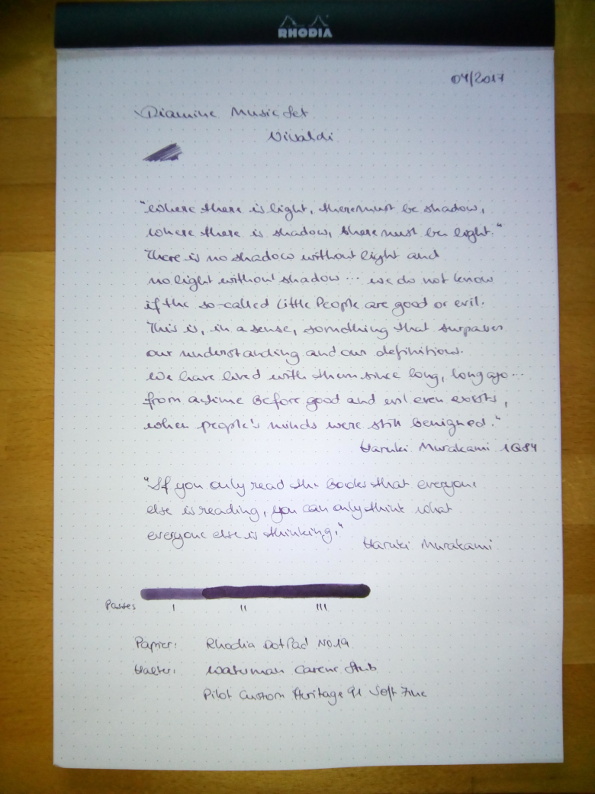 RHODIA
04/2017
Diamine Music Set
Vivaldi
"Where there is light, there must be shadow,
where there is shadow, there must be light."
There is no shadow without light and
no light without shadow... we do not know
if the so-called Little People are good or evil.
This is, in a sense, something that surpasses
our understanding and our definitions.
We have lived with them since long, long ago...
from a time before good and evil even existed,
when people's minds were still benighted."
Haruki Murakami 1Q84
"If you only read the books that everyone
else is reading, you can only think what
everyone else is thinking."
Haruki Murakami
Passes I II III
Papier: Rhodia DotPad No.19
Halter: Waterman Carene Stub
Pilot Custom Heritage 91 Soft Fine